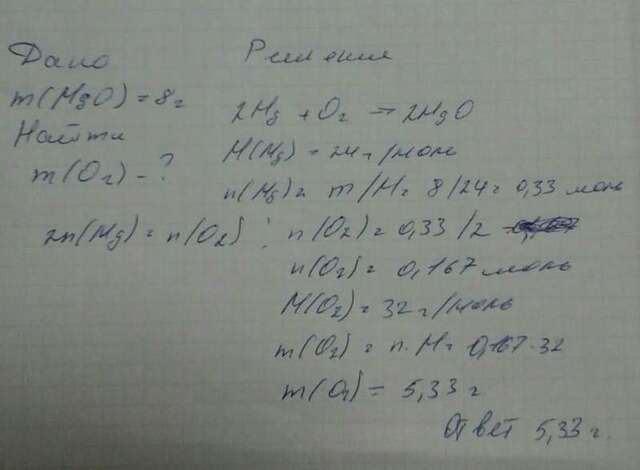 Дано
m(MgO) = 8г
Найти
m(O2) - ?
2n(Mg) = n(O2)
Решение
2Mg + O2 → 2MgO
M(Mg) = 24 г/моль
n(Mg) = m/M = 8/24 = 0,33 моль
n(O2) = 0,33/2
n(O2) = 0,167 моль
M(O2) = 32 г/моль
m(O2) = n·M = 0,167·32
m(O2) = 5,33 г
Ответ 5,33 г.